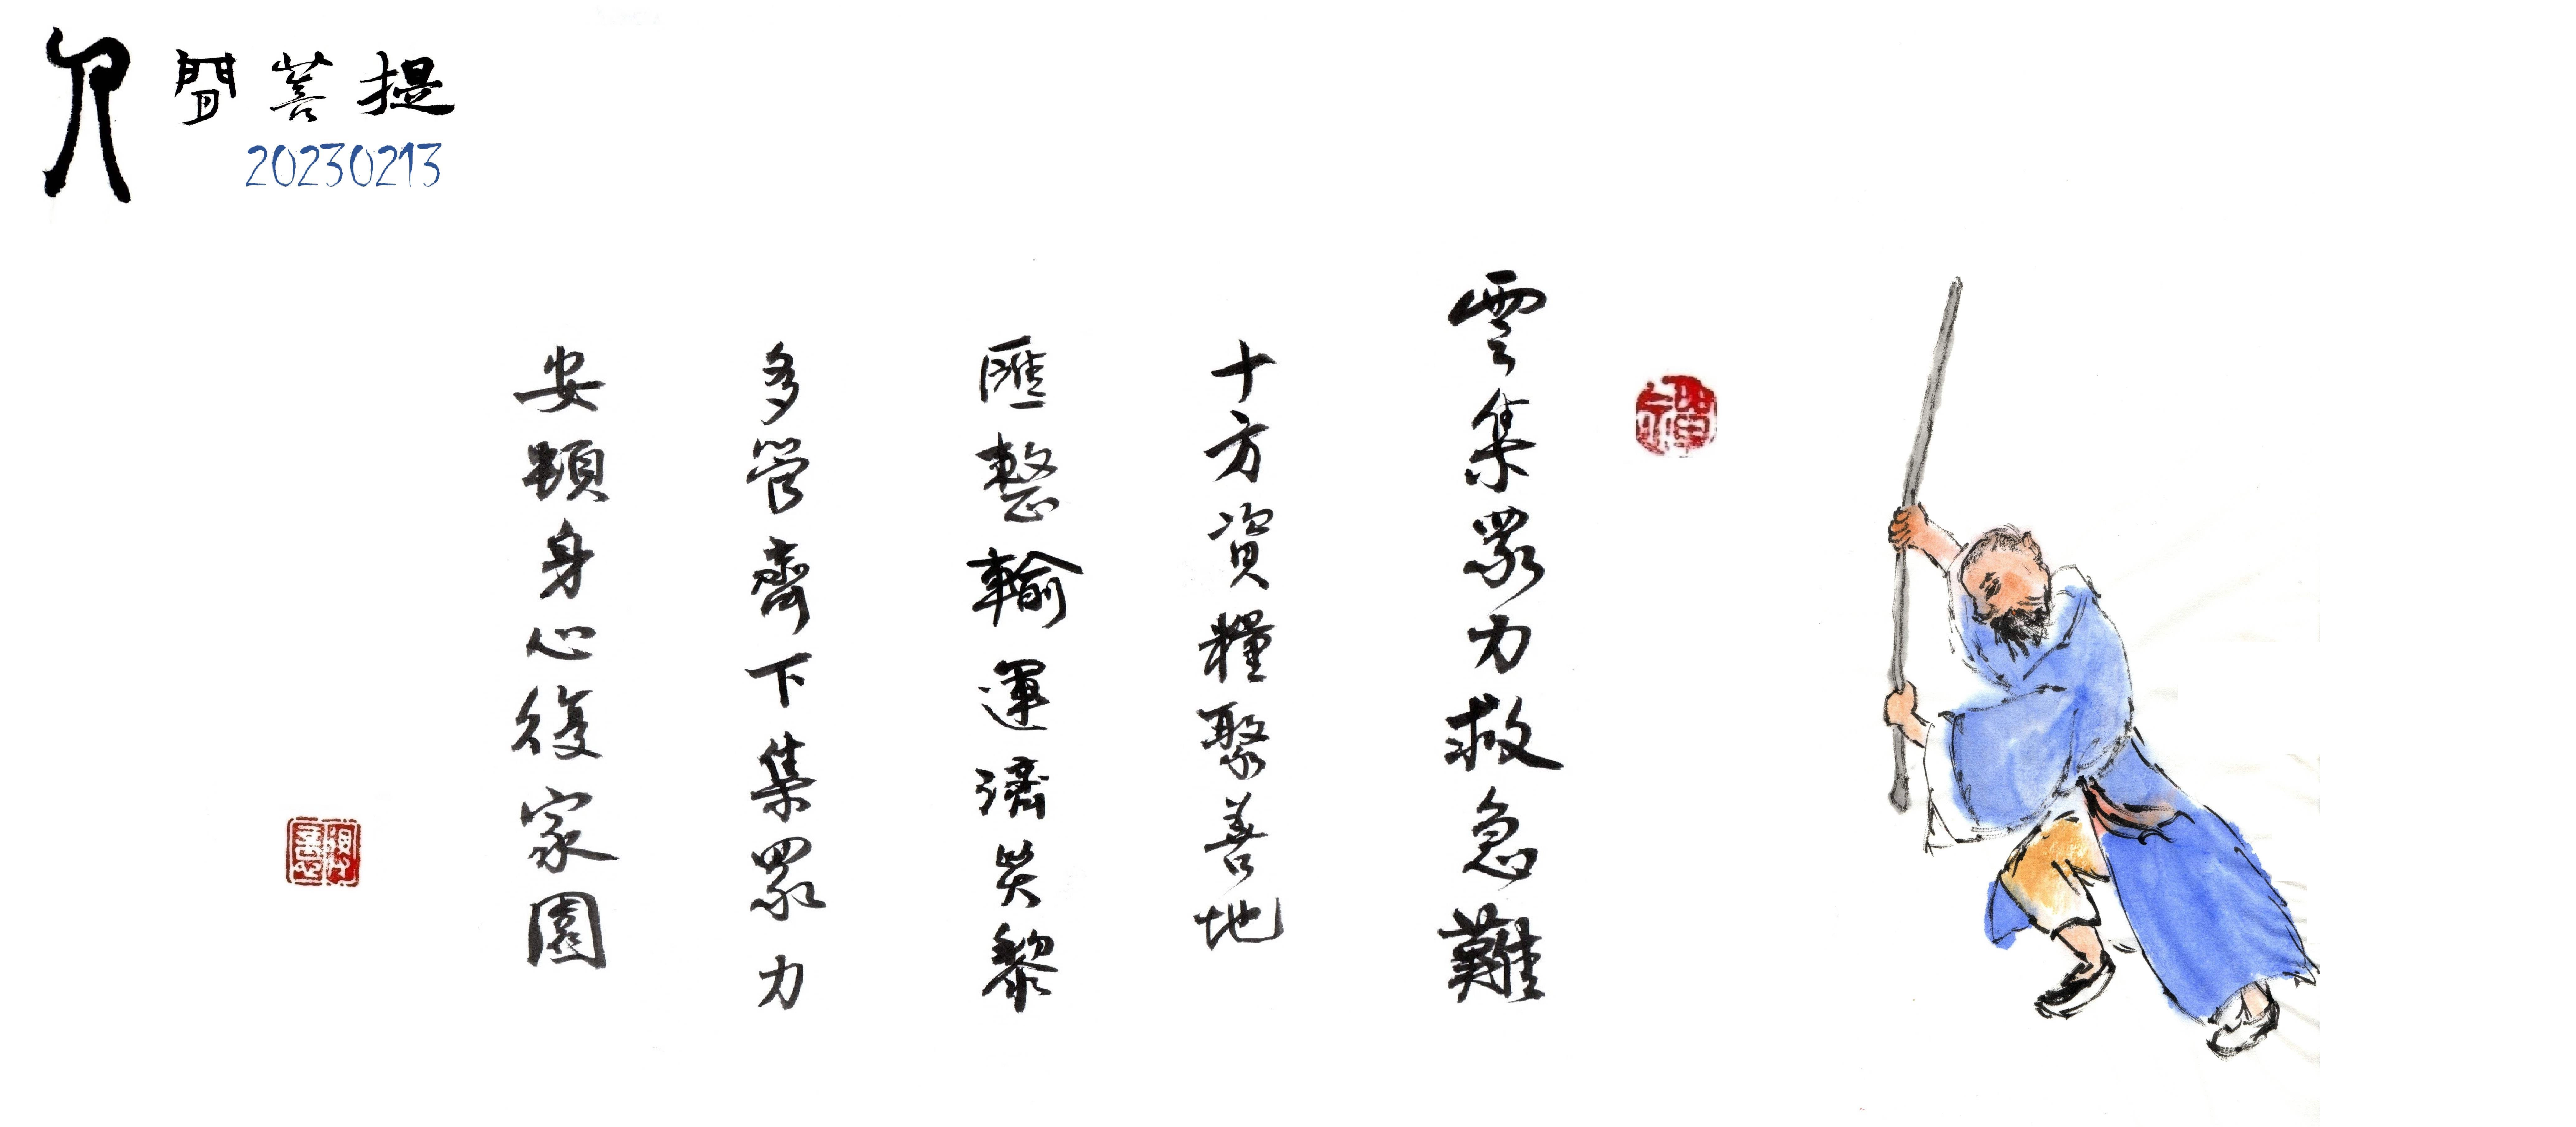 人間菩提
20230213
雲集眾力救急難
十方資糧聚善地
匯整輸運濟災黎
多管齊下集眾力
安頓身心復家園
禪